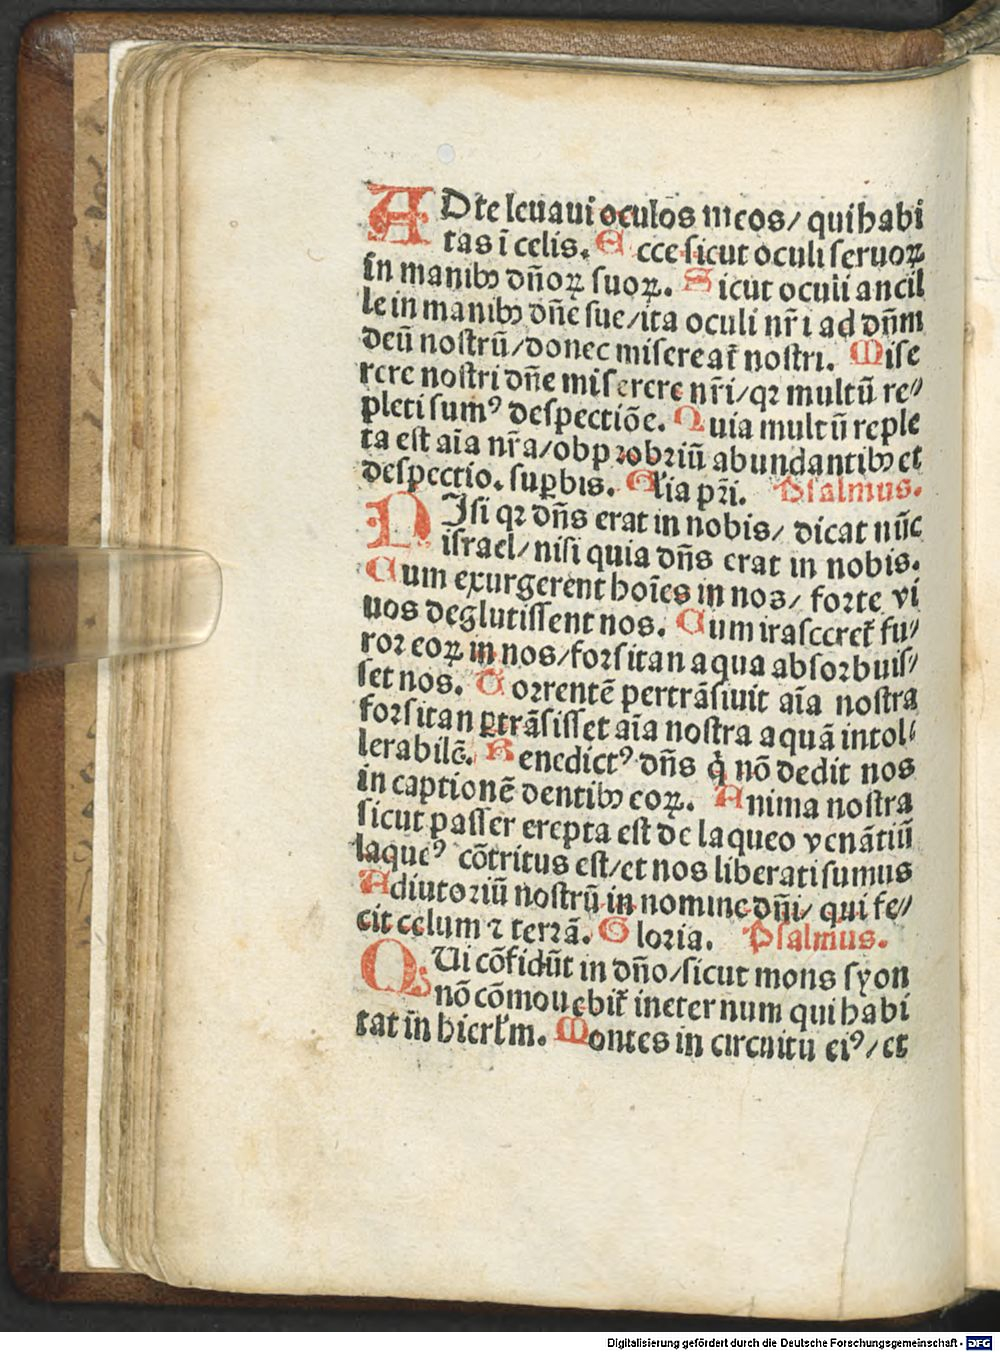 AD te leuaui oculos meos/ qui habi
tas ī celis. Ecce sicut oculi seruoꝝ
in manibꝰ dn̄oꝝ suoꝝ. Sicut oculi ancil
le in manibꝰ dn̄e sue/ita oculi nr̄i ad dn̄m
deū nostrū/donec misereat̄ nostri. Mise
rere nostri dn̄e miserere nr̄i/qꝛ multū re//
pleti sumꝰ despectiōe. Quia multū reple
ta est aīa nr̄a/obpꝛobꝛiū abundantibꝰ et
despectio. suꝑbis. Gl'ia pꝛi. Psalmus.
NIsi qꝛ dn̄s erat in nobis/ dicat nūc
israel/nisi quia dn̄s erat in nobis.
Cum exurgerent hoīes in nos/ foꝛte vi
uos deglutissent nos. Cum irasceret̄ fu//
roꝛ eoꝝ in nos/foꝛsitan aqua absoꝛbuis//
set nos. Toꝛrentē pertrāsiuit aīa nostra
foꝛsitan ꝑtrāsisset aīa nostra aquā intol//
lerabilē. Benedictꝰ dn̄s q̇ nō dedit nos
in captionē dentibꝰ eoꝝ. Anima nostra
sicut passer erepta est de laqueo venātiū
laqueꝰ cōtritus est/et nos liberati sumus
Adiutoꝛiū nostrū in nomine dn̄i/ qui fe//
cit celum ⁊ terrā. Gloꝛia. Psalmus.
QUi cōfidūt in dn̄o/sicut mons syon
nō cōmouebit̄ ineternum qui habi
tat in̄ hierl̄m. Montes in circuitu eiꝰ/et
Digitalisierung gefördert durch die Deutsche Forschungsgemeinschaft - DFG